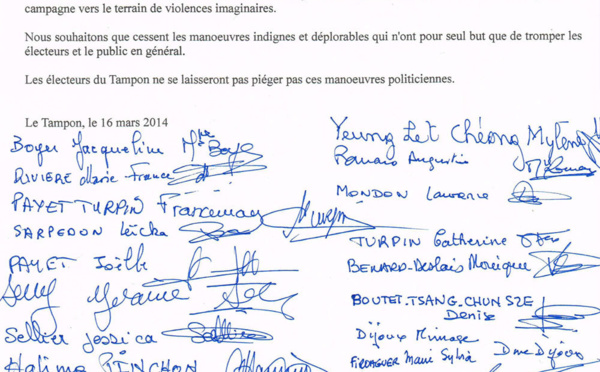 campagne vers le terrain de violences imaginaires.
Nous souhaitons que cessent les manoeuvres indignes et déplorables qui n'ont pour seul but que de tromper les
électeurs et le public en général.
Les électeurs du Tampon ne se laisseront pas piéger pas ces manoeuvres politiciennes.
Le Tampon, le 16 mars 2014
Boyer Jacqueline
RIVIERE Marie-France
PAYET TURPIN
SARPEDON
PAYET Joëlle
Sellier Jessica
Halima PINCHON
Yeung Let Cheong
Romain Augustin
MONDON Laurence
TURPIN Catherine
BENARD-Deslais Monique
BOUTET.TSANG.CHUN SZE
Denise
Dijoux
Marie Sylvia Dijoux